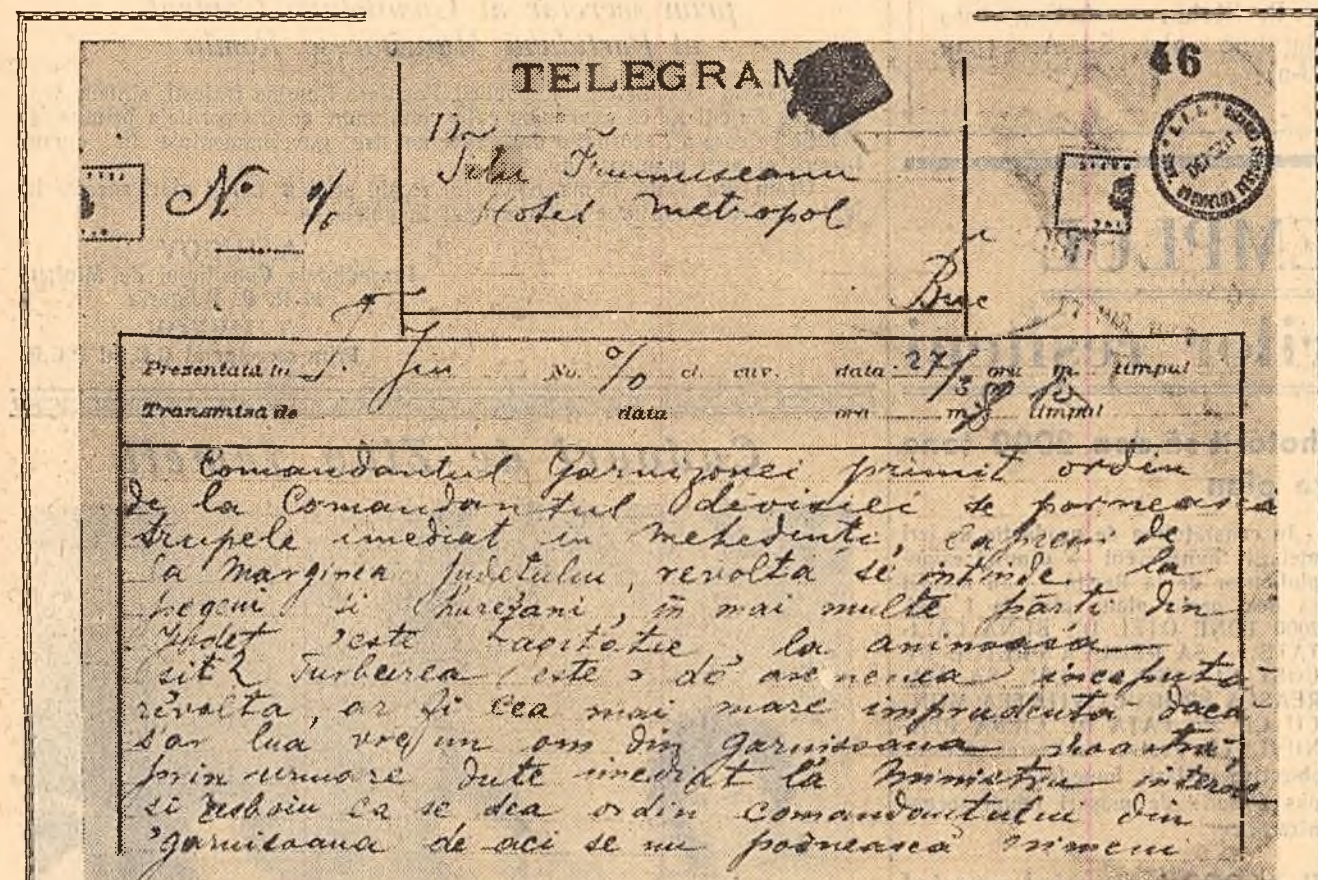 46
TELEGRAM
Hotel Metropol
Buc
No
Presentată în T. Jiu No. % cl. cuv. data 27/3 ora m. timpul
Transmisă de data ora m. timpul
Comandantul Garnizonei primit ordin
de la Comandantul diviziei se pornească
trupele imediat in Mehedinti, de
la marginea judetului, revolta se intinde la
Pegeni si Hurezani, in mai multe părti din
Judet este agitatie, la aninoasa
si Turburea este de asemenea inceputa
revolta, ar fi cea mai mare imprudentă daca
s'ar luă vre un om din garnisoana noastra,
prin urmare dute imediat la Ministru interne
si resboiu ca se dea ordin comandantului din
garnisoana de aci se nu pornească nimeni